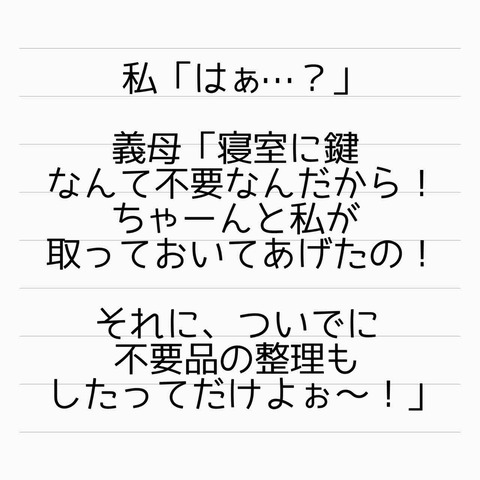 私「はぁ…？」
義母「寝室に鍵
なんて不要なんだから！
ちゃーんと私が
取っておいてあげたの！
それに、ついでに
不要品の整理も
したってだけよぉ～！」